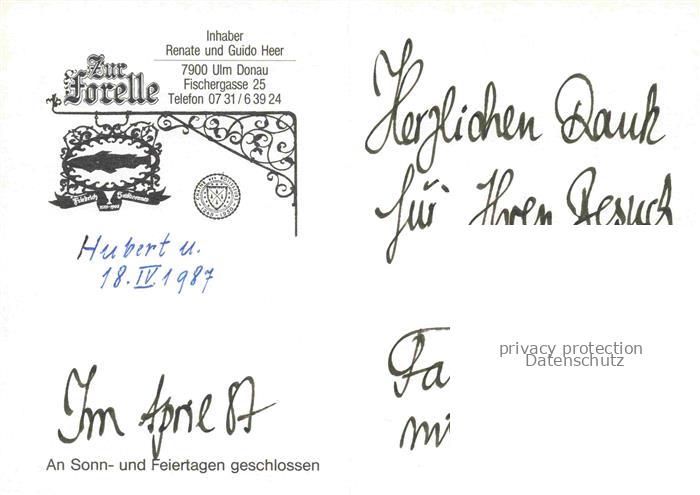 Inhaber
Renate und Guido Heer
Zur
Forelle
7900 Ulm Donau
Fischergasse 25
Telefon 07 31 / 6 39 24
Friedrich
Hubert u.
18. IV. 1987
Im April 87
An Sonn- und Feiertagen geschlossen
Herzlichen Dank
für Ihren Besuch
Fa
mi
privacy protection
Datenschutz